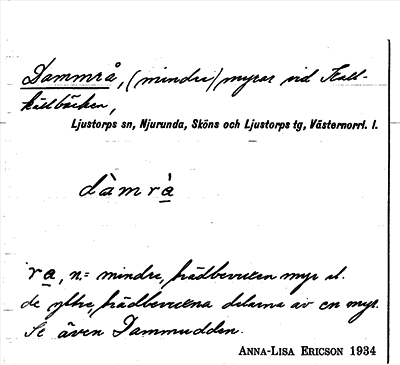 Dammrå, (mindre) myrar vid Kall-
källbäcken,
Ljustorps sn, Njurunda, Sköns och Ljustorps tg, Västernorrl. l.
dàmrà
ra, n.= mindre, trädbevuxen myr el.
de yttre, trädbevuxna delarna av en myr.
Se även Dammudden.
ANNA-LISA ERICSON 1934